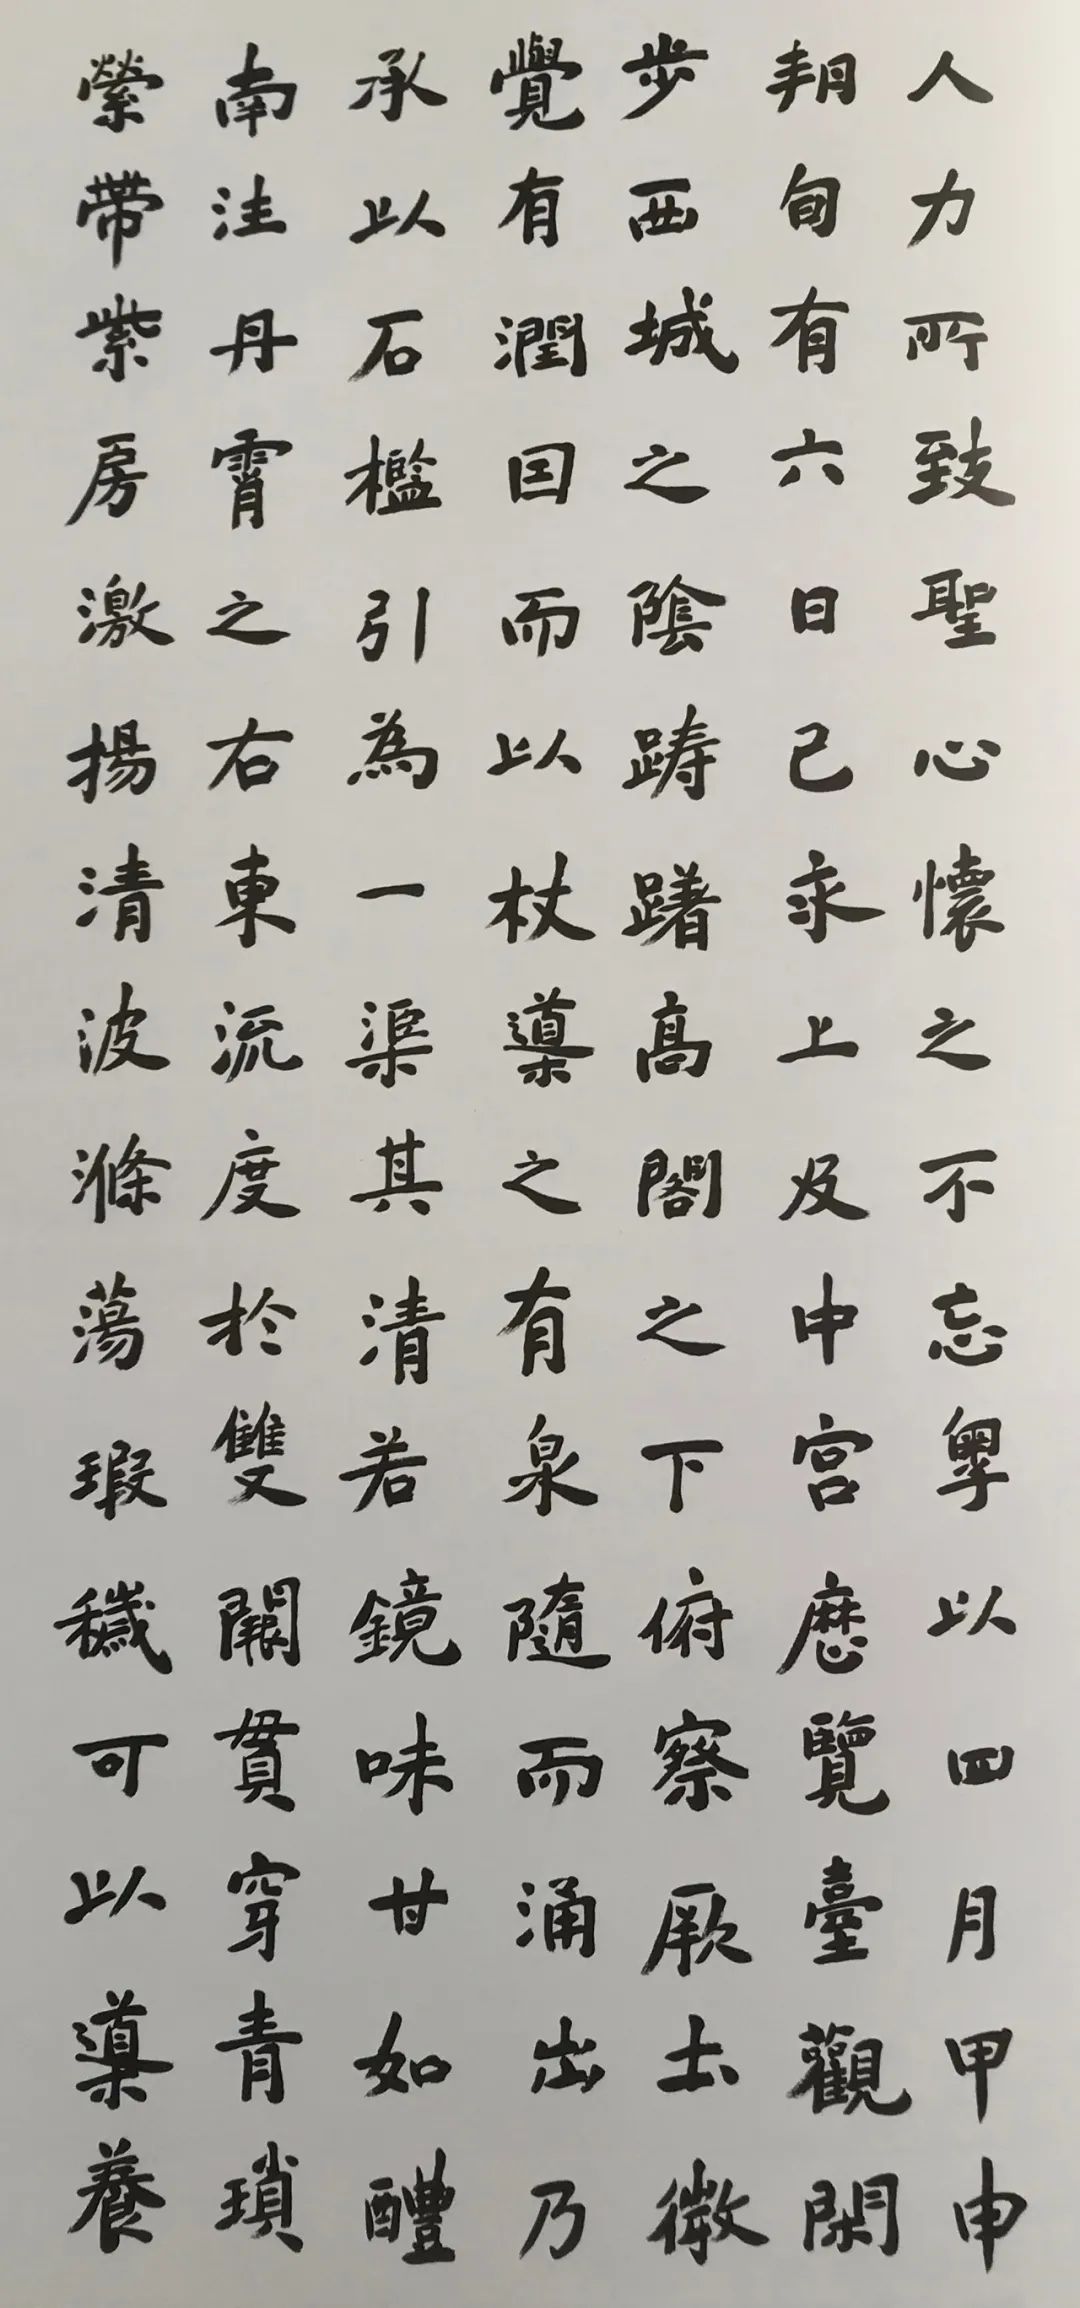 人力所致聖心懷之不忘粵以四月甲申
朔旬有六日己亥上及中宮歷覽臺觀閑
步西城之陰躊躇高閣之下俯察厥土微
覺有潤因而以杖導之有泉隨而涌出乃
承以石檻引為一渠其清若鏡味甘如醴
南注丹霄之右東流度於雙闕貫穿青瑣
縈帶紫房激揚清波滌蕩瑕穢可以導養